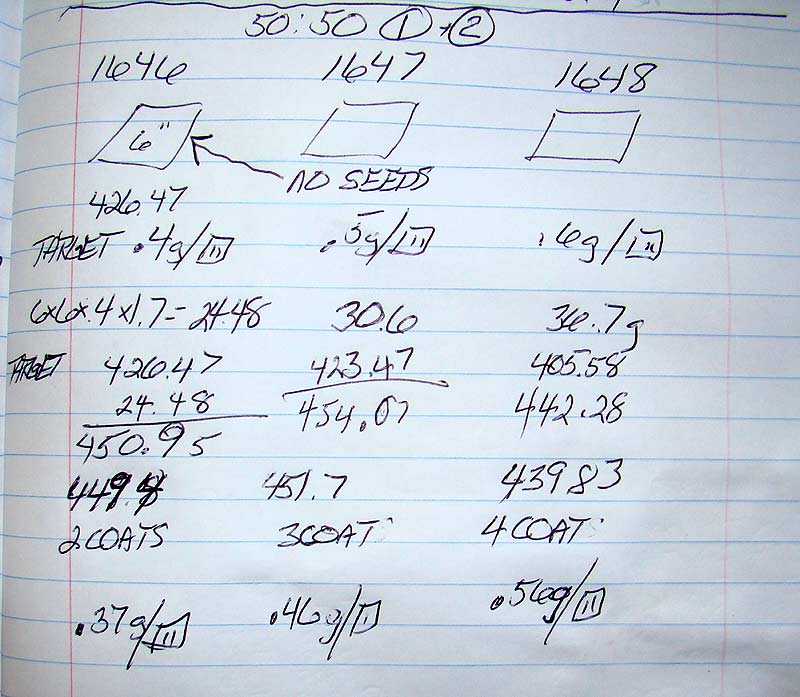 50:50 ① + ②
1646 1647 1648
6"
NO SEEDS
426.47
TARGET .4g/□" .5g/□" .6g/□"
6x6x.4x1.7= 24.48 30.6 36.7g
TARGET 426.47 423.47 405.58
24.48 454.07 442.28
450.95
449.4 451.7 439.83
2 COATS 3 COAT 4 COAT
.37g/□" .46g/□" .56g/□"